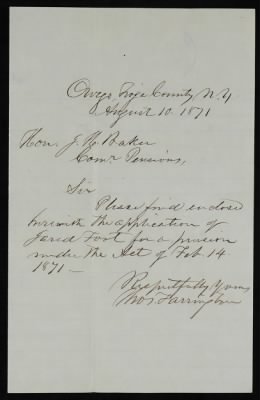 Owego Tioga County N.Y
August 10. 1871
Hon. J. H. Baker
Comr Pensions,
Sir
Please find enclosed
herewith the application of
Jared Foot for a pension
under the Act of Feb. 14
1871 —
Respectfully Yours
Thos. Farrington